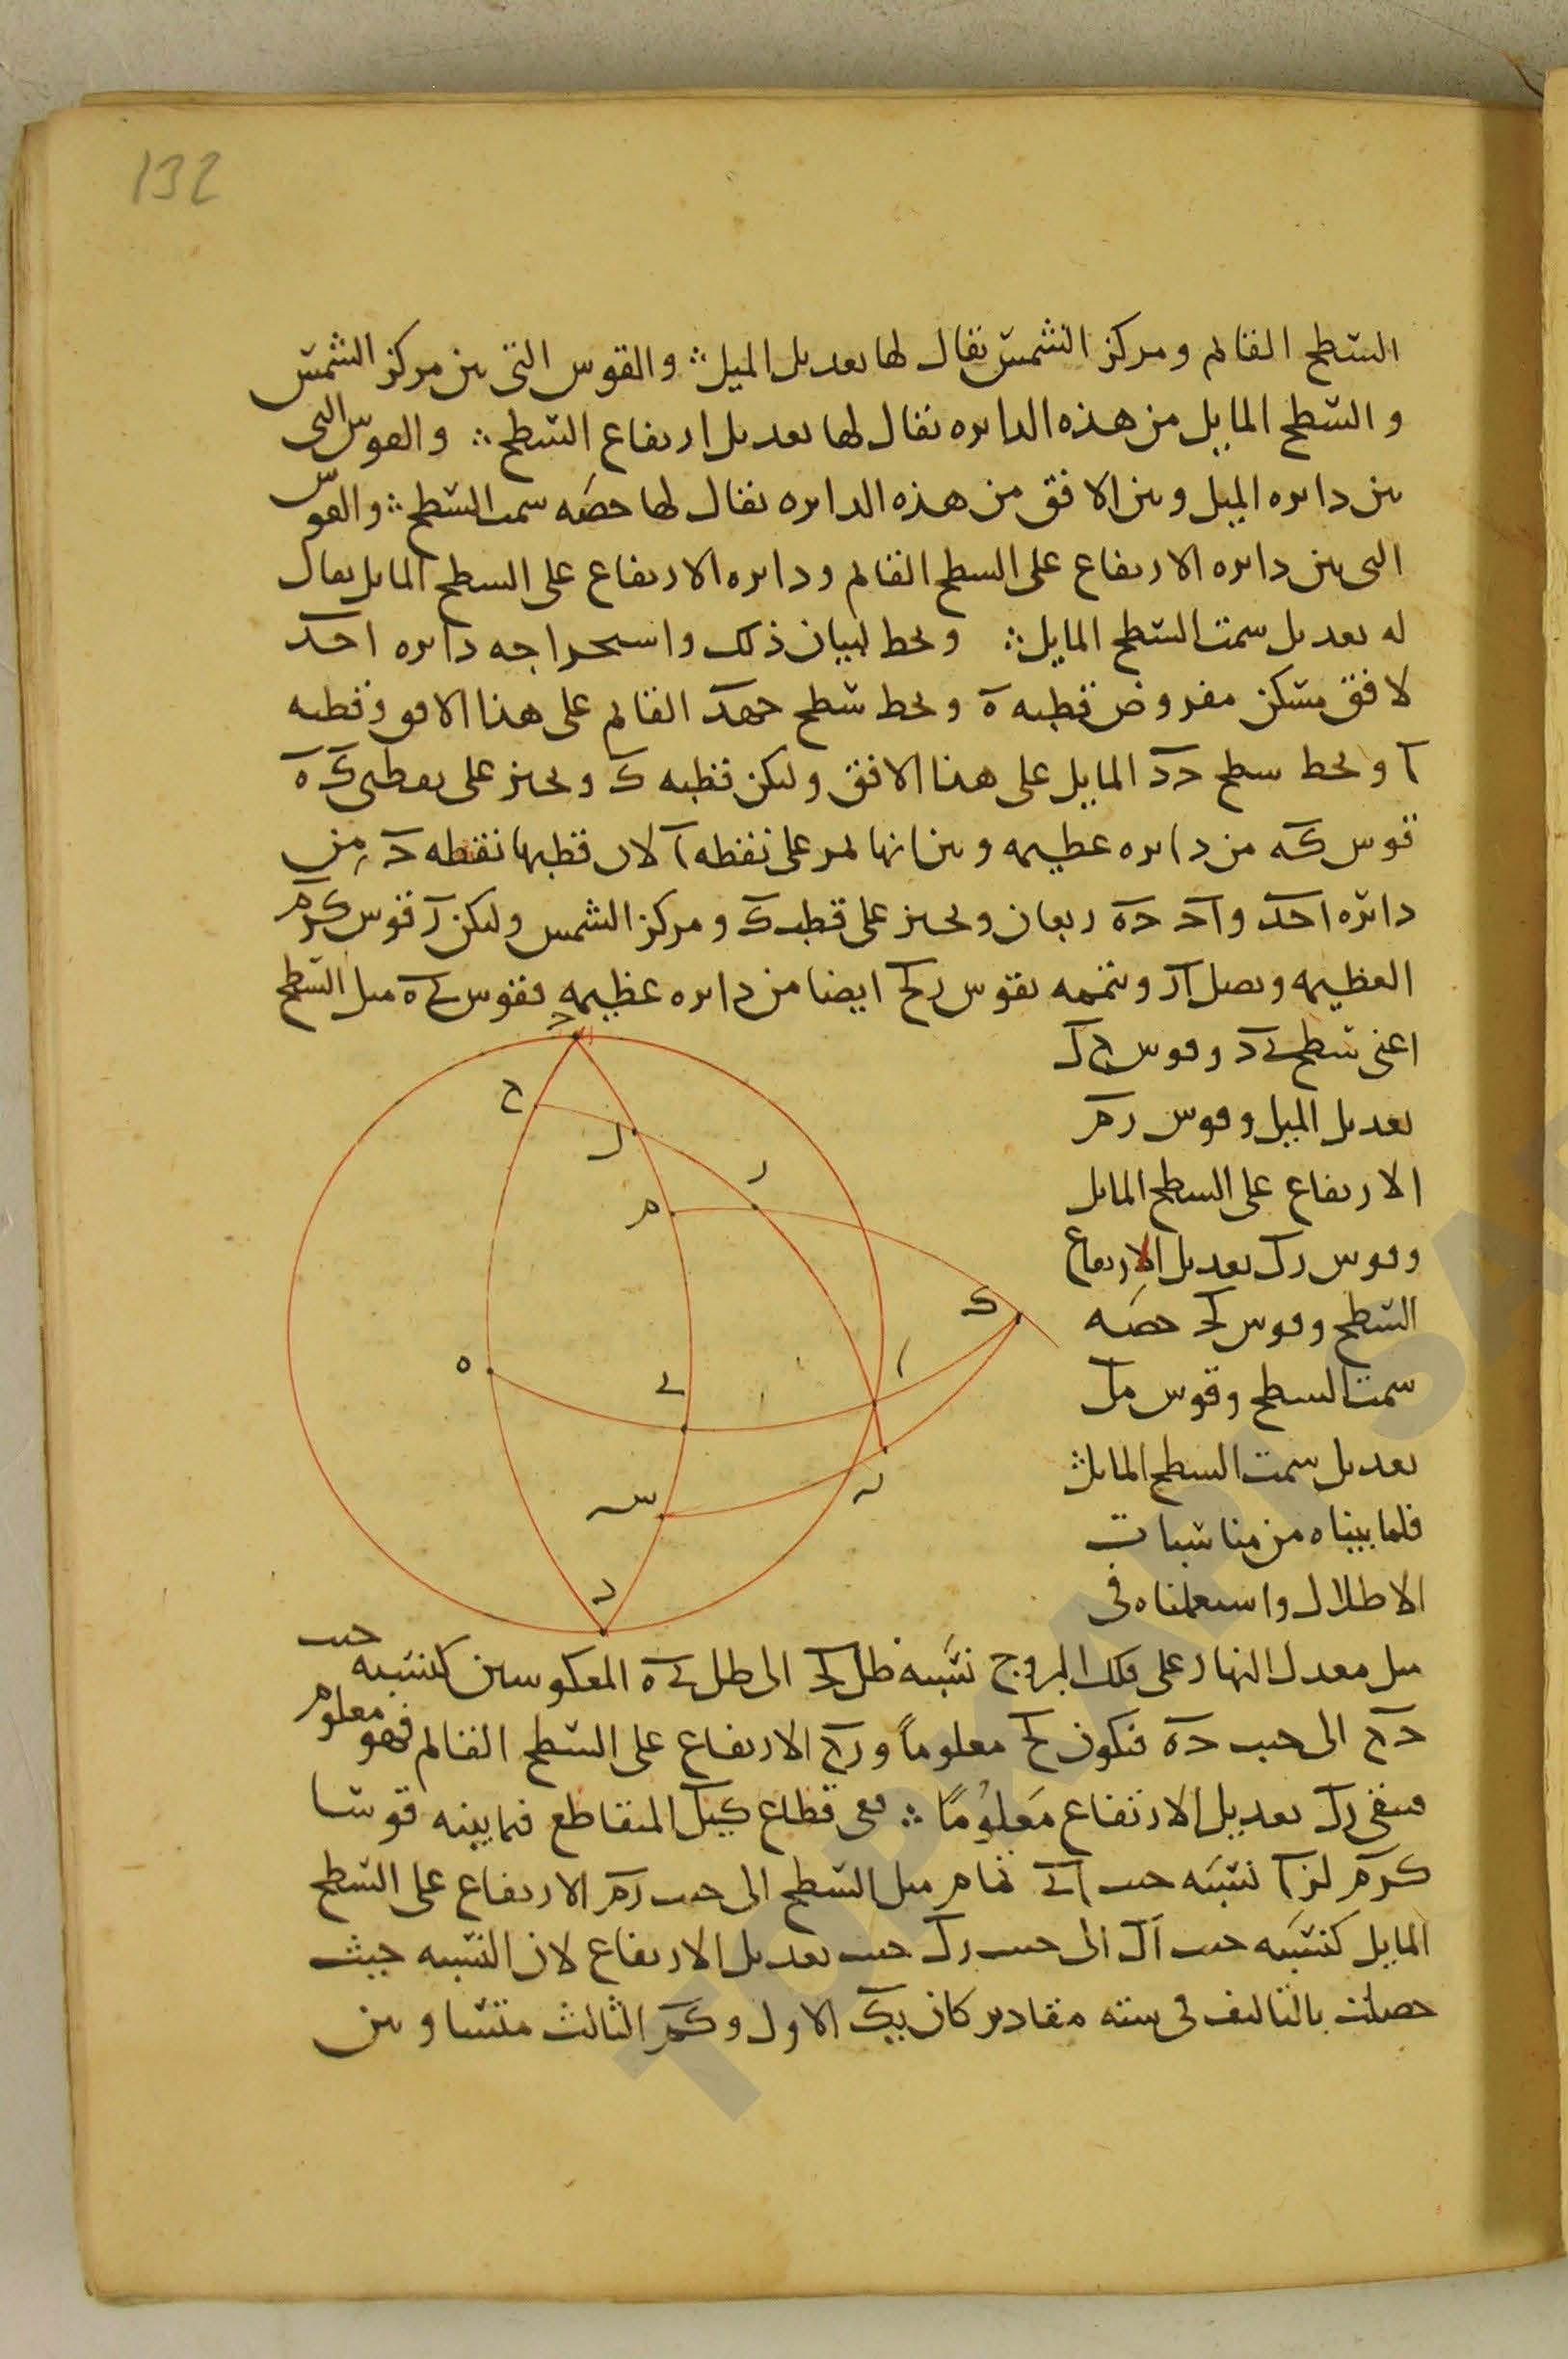 132
السطح القائم ومركز الشمس يقال لها تعديل الميل ؞ والقوس التي بين مركز الشمس
والسطح المايل من هذه الدايره يقال لها تعديل ارتفاع السطح ؞ والقوس التي
بين دايره الميل وبين الافق من هذه الدايره يقال لها حصه سمت السطح ؞ والقوس
التي بين دايره الارتفاع على السطح القائم ودايره الارتفاع على السطح المايل يقال
له تعديل سمت السطح المايل ؞ ونخط لبيان ذلك واستخراجه دايره احد
لافق مسكن مفروض قطبه ه ونخط سطح حهد القائم على هذا الافق وقطبه
ا ونخط سطح حد المايل على هذا الافق وليكن قطبه ك ونجيز على نقطتى ك ه
قوس كه من دايره عظيمه وبين انها تمر على نقطه ا لان قطبها نقطه ح من
دايره احد و اح حه ربعان ونجيز على قطب ك ومركز الشمس وليكن ر قوس كرم
العظيمه ونصل ار ونتممه بقوس رح ايضا من دايره عظيمه فقوس ى ه ميل السطح
اعنى سطح ى د وقوس ح ل
تعديل الميل وقوس رم
الارتفاع على السطح المايل
وقوس رل تعديل الارتفاع
السطح وقوس لح حصه
سمت السطح وقوس مل
تعديل سمت السطح المايل ؞
فلما بيناه من مناسبات
الاطلال واستعملناه فى
ميل معدل النهار على فلك البروج نسبه ظل لح الى ظل ى ه المعكوسين كنسبه جيب
حح الى جيب حه فيكون لح معلوماً ورح الارتفاع على السطح القائم فهو معلوم
فيبقى رل تعديل الارتفاع معلوماً ؞ ففى قطاع كيل المتقاطع فيما بينه قوسا
كرم لرا نسبه جيب اى تمام ميل السطح الى جيب رم الارتفاع على السطح
المايل كنسبه جيب ال الى جيب رل جيب تعديل الارتفاع لان النسبه حيث
حصلت بالتاليف فى سته مقادير كان يك الاول وكم الثالث متساويين
ح
ح
ل
ر
م
ك
ه
ى
ا
س
ن
د
TOPKAPI SA